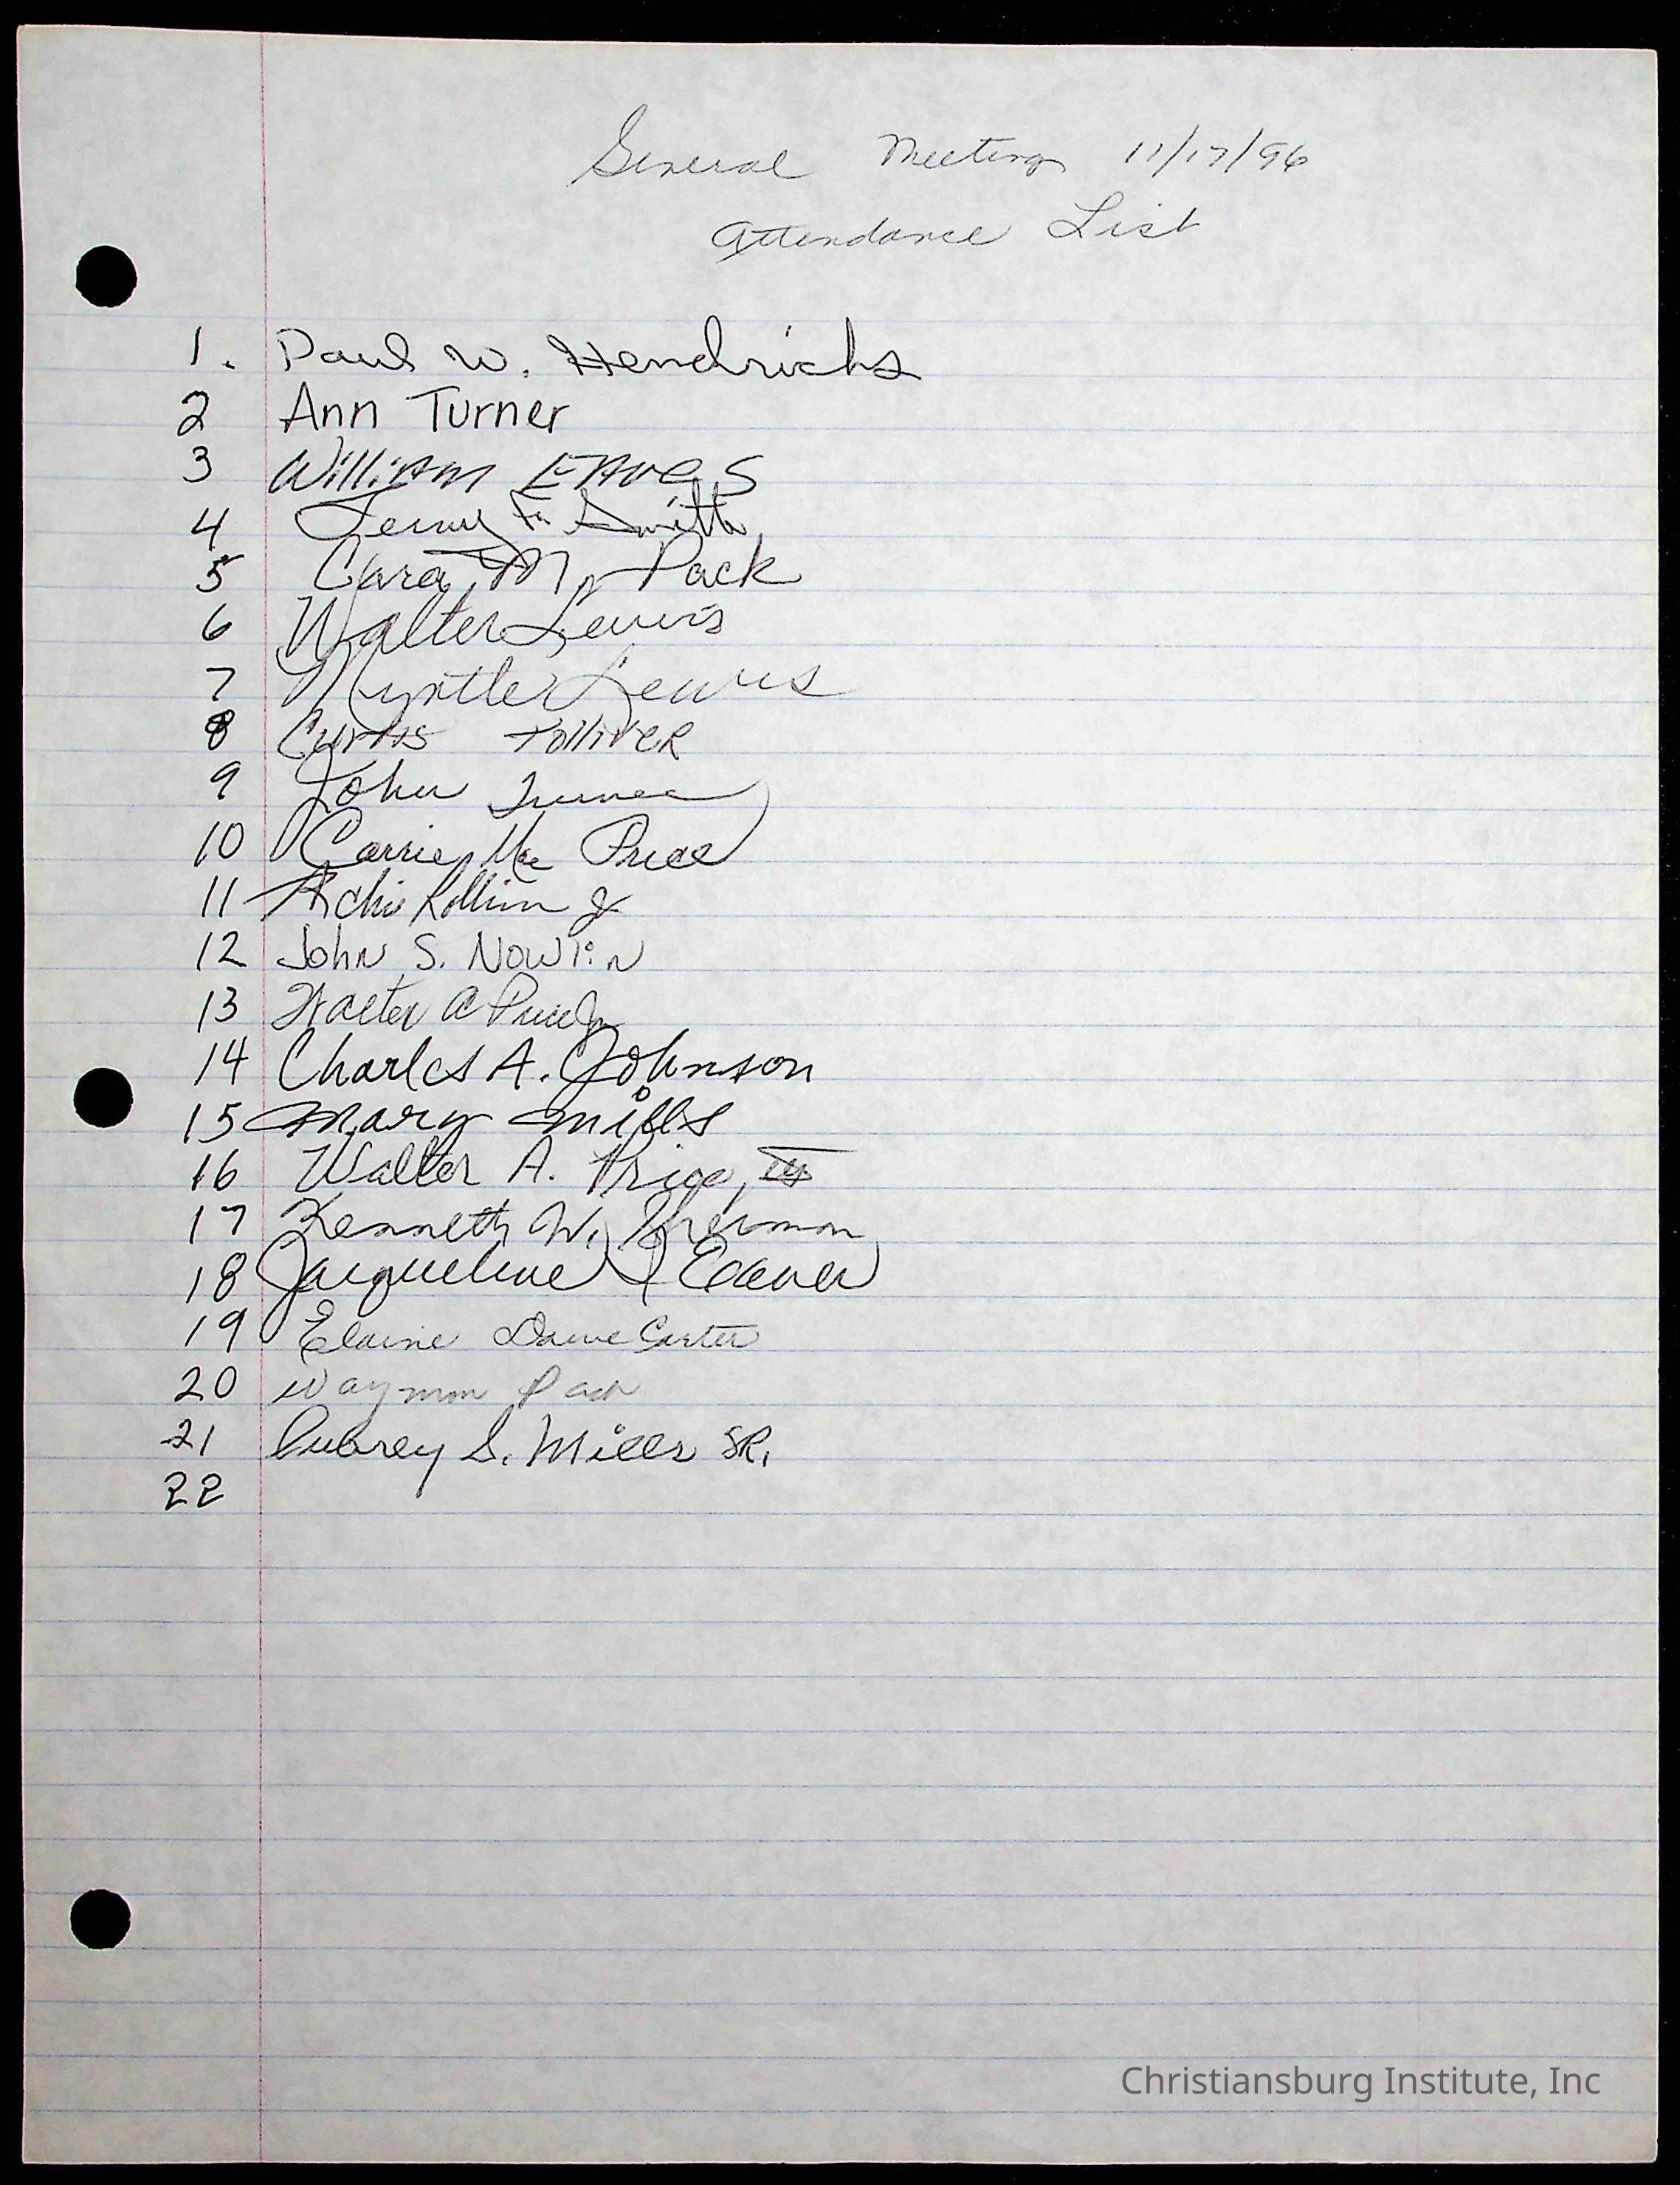 General Meeting 11/17/96
Attendance List
1. Paul W. Hendricks
2 Ann Turner
3 William EAVES
4 F. Smith
5 Cara M. Pack
6 Walter Lewis
7 Myrtle Lewis
8 Curtis Tolliver
9 John Turner
10 Carrie Mae Price
11 Jr
12 John S. Nowlin
13 Walter A Price Jr
14 Charles A. Johnson
15 Mary Mills
16 Walter A. Price, III
17 Kenneth W. Sherman
18 Jacqueline Eaves
19 Elaine Dowe Carter
20 Waymon Pack
21 Aubrey S. Mills SR.
22
Christiansburg Institute, Inc